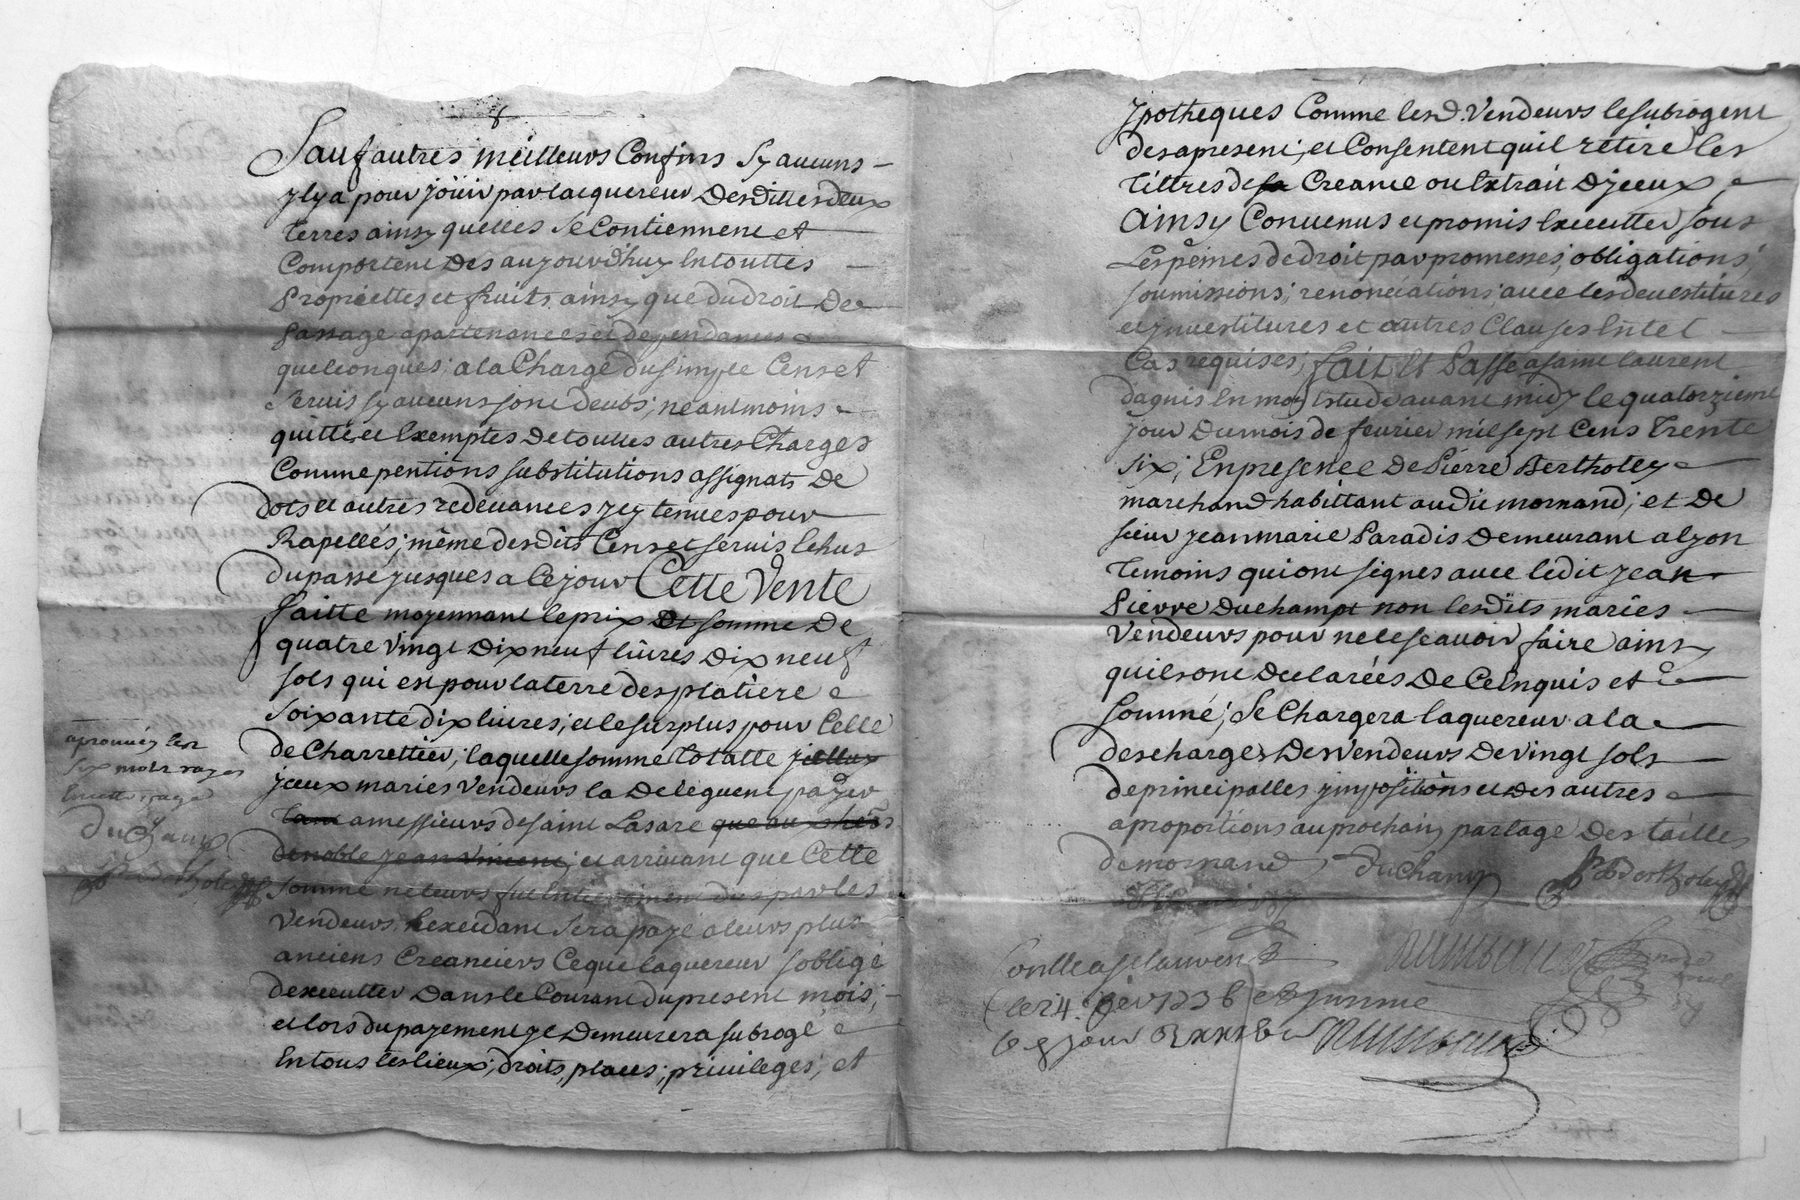 Sauf autres meilleurs Confins Sy aucuns
yl y a pour joüir par lacquereur Desdittes deux
terres ainsy quelles Se Contiennent et
Comportent Des aujourdhuy En touttes
proprietés et fruits ainsy que du droit De
passage apartenances et dependances
quelconques; a la Charge du Simple Cens et
Servis Sy aucuns sont deubs; neantmoins
quitte et Exemptes De touttes autres Charges
Comme pentions substitutions assignats De
dots et autres redevances ycy tenues pour
Rapellés; même desdits Cens et servis Echus
du passé jusques a Ce jour Cette Vente
faitte moyennant le prix Et somme De
quatre vingt Dix neuf livres Dix neuf
sols qui est pour la terre des platiere
Soixante dix livres; et le surplus pour Celle
de Charrettier; laquelle somme totalle
yceux maries Vendeurs la Deleguent payer
tant a messieurs de saint Lasare que aux
de noble Jean Vincent; et arrivant que Cette
somme ne leurs fut Entierement due par les
Vendeurs l'Exceidant Sera payé a leurs plus
anciens Creanciers Ce que laquereur soblige
dexecutter Dans le Courant du present mois;
et lors du payement yl Demeurera subrogé
En tous les lieux, droits, places, privileges; et
aprouvés les
Six mots rayes
Duchamp
ypotheques Comme lesd. Vendeurs le subrogent
des apresent; et Consentent quil retire les
tittres de sa Creance ou Extrait Dyceux
Ainsy Convenus et promis Executter sous
Les peines de droit par promesses, obligations,
soumissions; renonciations avec les devestitures
et ynvestitures et autres Clauses En tel
Cas requises; fait Et Passé a saint laurent
dagnis En mon Etude avant midy le quatorzieme
jour Du mois de fevrier mil sept Cens trente
six; En presence De Pierre Bertholey
marchand habittant audit mornand; et De
sieur jean marie Paradis Demeurant a lyon
temoins qui ont signes avec ledit jean
Pierre Duchampt non lesdits maries
Vendeurs pour ne le scavoir faire ainsy
quils ont Declarées De Ce Enquis et
sommé; Se Chargera laquereur a la
descharges Des Vendeurs De vingt sols
de principalles ympositions et des autres
a proportions au prochain partage Des tailles
de mornand Duchamp Bertholey
Conllé a St laurent
le 14. fev 1736